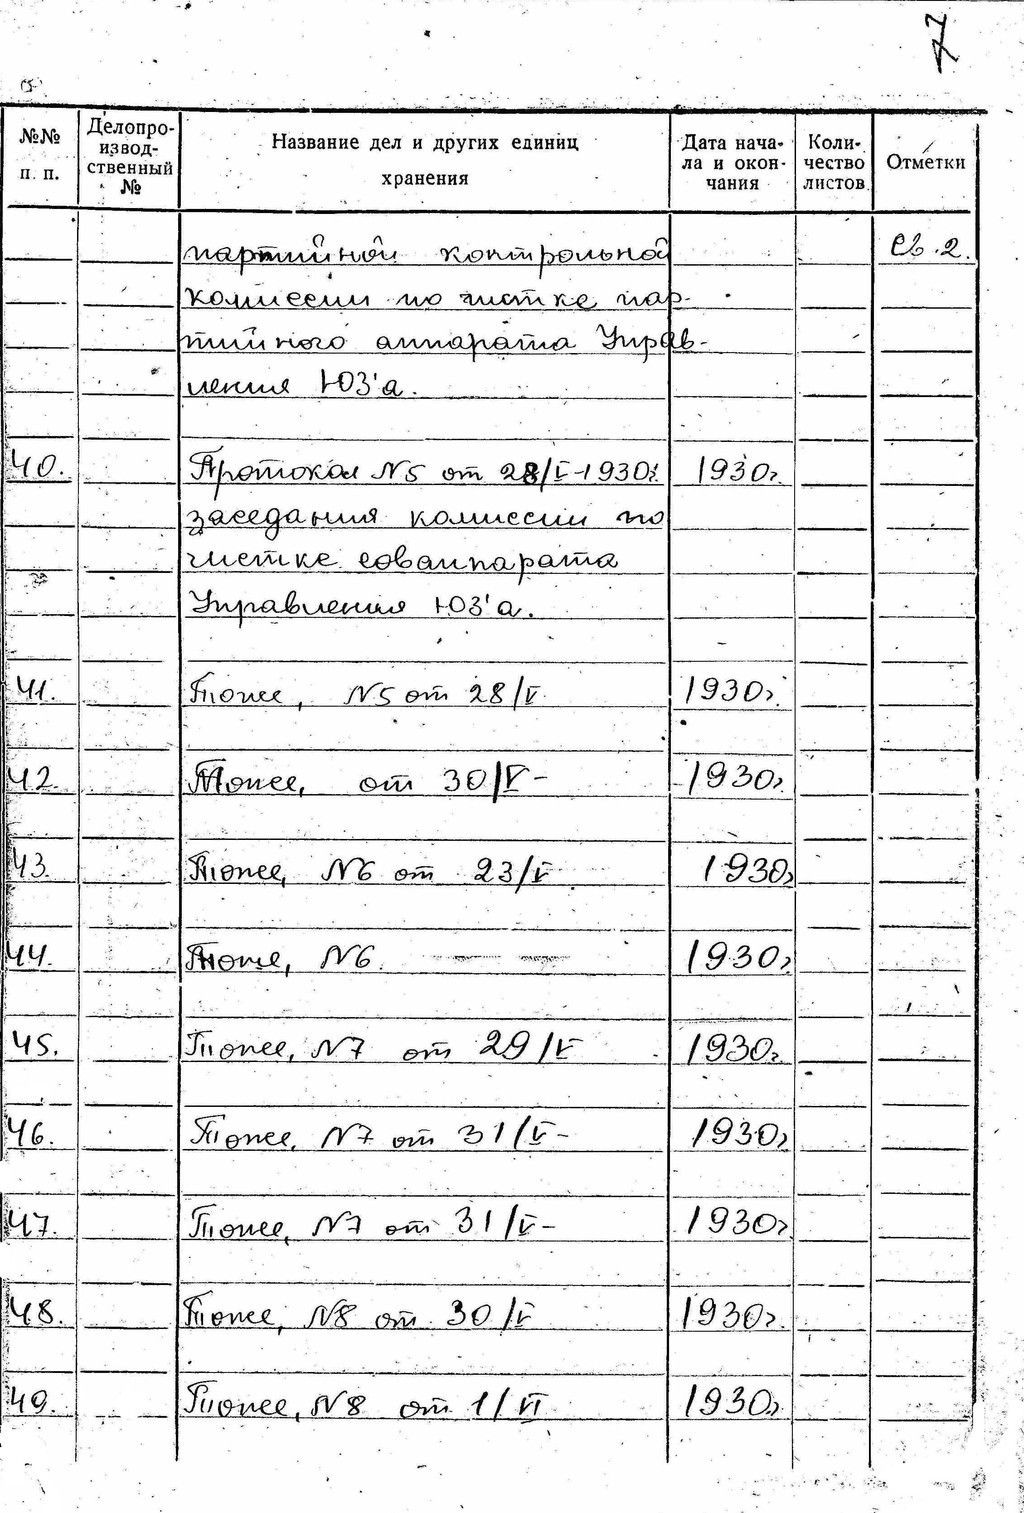 7
№№ п. п. Делопро-извод-ственный № Название дел и других единиц хранения Дата нача-ла и окон-чания Коли-чество листов Отметки
партийной контрольной св. 2.
комиссии по чистке пар-
тийного аппарата Управ-
ления ЮЗ'а.
40. Протокол N5 от 28/V-1930г. 1930г.
заседания комиссии по
чистке соваппарата
Управления ЮЗ'а.
41. Тоже, N5 от 28/V 1930г.
42. Тоже, от 30/V- 1930г.
43. Тоже, N6 от 23/V 1930г
44. Тоже, N6 1930г
45. Тоже, N7 от 29/V 1930г.
46. Тоже, N7 от 31/V- 1930г
47. Тоже, N7 от 31/V- 1930г
48. Тоже, N8 от 30/V 1930г.
49. Тоже, N8 от 1/VI 1930г